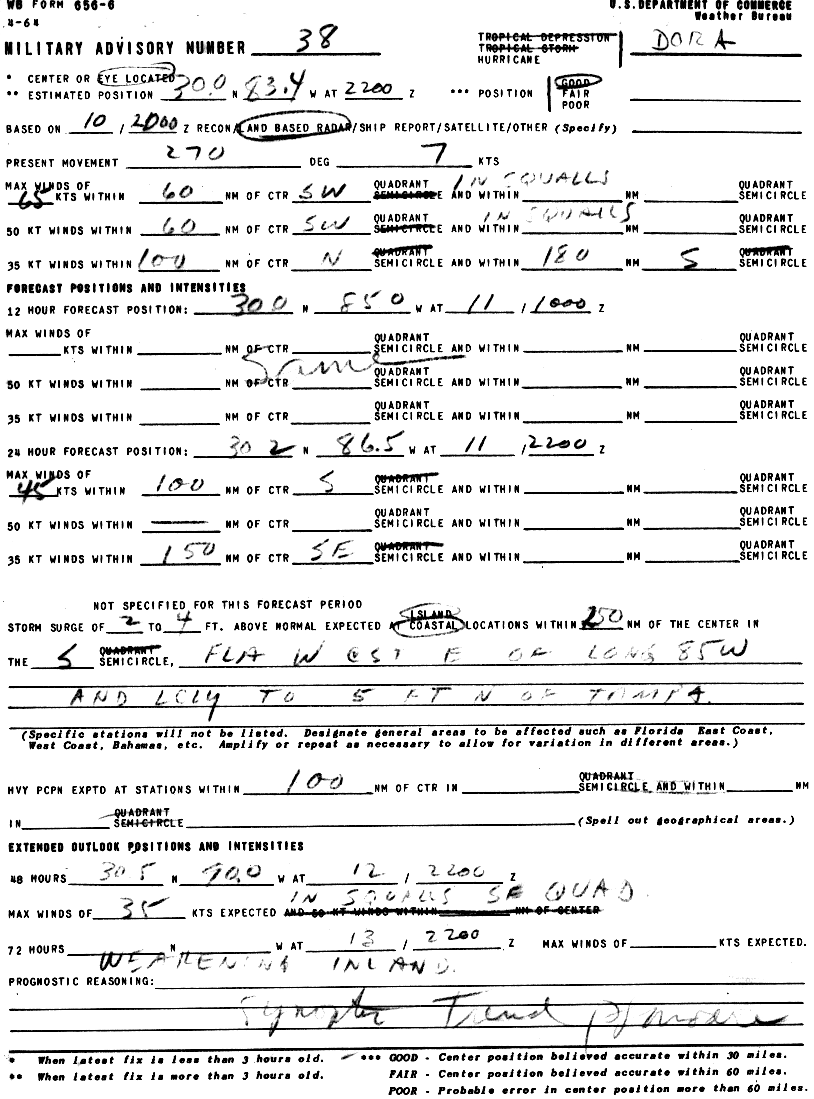 WB FORM 656-6
4-64
U.S. DEPARTMENT OF COMMERCE
Weather Bureau
MILITARY ADVISORY NUMBER 38
TROPICAL DEPRESSION
TROPICAL STORM
HURRICANE
DORA
* CENTER OR EYE LOCATED
** ESTIMATED POSITION 30.0 N 83.4 W AT 2200 Z *** POSITION
GOOD
FAIR
POOR
BASED ON 10 / 2000 Z RECON/LAND BASED RADAR/SHIP REPORT/SATELLITE/OTHER (Specify)
PRESENT MOVEMENT 270 DEG 7 KTS
MAX WINDS OF
65 KTS WITHIN 60 NM OF CTR SW QUADRANT SEMICIRCLE AND WITHIN IN SQUALLS NM QUADRANT SEMICIRCLE
50 KT WINDS WITHIN 60 NM OF CTR SW QUADRANT SEMICIRCLE AND WITHIN IN SQUALLS NM QUADRANT SEMICIRCLE
35 KT WINDS WITHIN 100 NM OF CTR N QUADRANT SEMICIRCLE AND WITHIN 180 NM S QUADRANT SEMICIRCLE
FORECAST POSITIONS AND INTENSITIES
12 HOUR FORECAST POSITION: 30 0 N 85 0 W AT 11 / 1000 Z
MAX WINDS OF
KTS WITHIN NM OF CTR QUADRANT SEMICIRCLE AND WITHIN NM QUADRANT SEMICIRCLE
Same
50 KT WINDS WITHIN NM OF CTR QUADRANT SEMICIRCLE AND WITHIN NM QUADRANT SEMICIRCLE
35 KT WINDS WITHIN NM OF CTR QUADRANT SEMICIRCLE AND WITHIN NM QUADRANT SEMICIRCLE
24 HOUR FORECAST POSITION: 30 2 N 86.5 W AT 11 / 2200 Z
MAX WINDS OF
45 KTS WITHIN 100 NM OF CTR S QUADRANT SEMICIRCLE AND WITHIN NM QUADRANT SEMICIRCLE
50 KT WINDS WITHIN — NM OF CTR QUADRANT SEMICIRCLE AND WITHIN NM QUADRANT SEMICIRCLE
35 KT WINDS WITHIN 150 NM OF CTR SE QUADRANT SEMICIRCLE AND WITHIN NM QUADRANT SEMICIRCLE
NOT SPECIFIED FOR THIS FORECAST PERIOD
STORM SURGE OF 2 TO 4 FT. ABOVE NORMAL EXPECTED AT ISLAND COASTAL LOCATIONS WITHIN 250 NM OF THE CENTER IN
THE S QUADRANT SEMICIRCLE, FLA W CST E OF LONG 85W
AND LCLY TO 5 FT N OF TAMPA.
(Specific stations will not be listed. Designate general areas to be affected such as Florida East Coast,
West Coast, Bahamas, etc. Amplify or repeat as necessary to allow for variation in different areas.)
HVY PCPN EXPTD AT STATIONS WITHIN 100 NM OF CTR IN QUADRANT SEMICIRCLE AND WITHIN NM
IN QUADRANT SEMICIRCLE (Spell out geographical areas.)
EXTENDED OUTLOOK POSITIONS AND INTENSITIES
48 HOURS 30.5 N 90.0 W AT 12 / 2200 Z
IN SQUALLS SE QUAD.
MAX WINDS OF 35 KTS EXPECTED AND 50 KT WINDS WITHIN NM OF CENTER
72 HOURS N W AT 13 / 2200 Z MAX WINDS OF KTS EXPECTED.
WEAKENING INLAND.
PROGNOSTIC REASONING:
Synoptic Trend
* When latest fix is less than 3 hours old.
** When latest fix is more than 3 hours old.
*** GOOD - Center position believed accurate within 30 miles.
FAIR - Center position believed accurate within 60 miles.
POOR - Probable error in center position more than 60 miles.